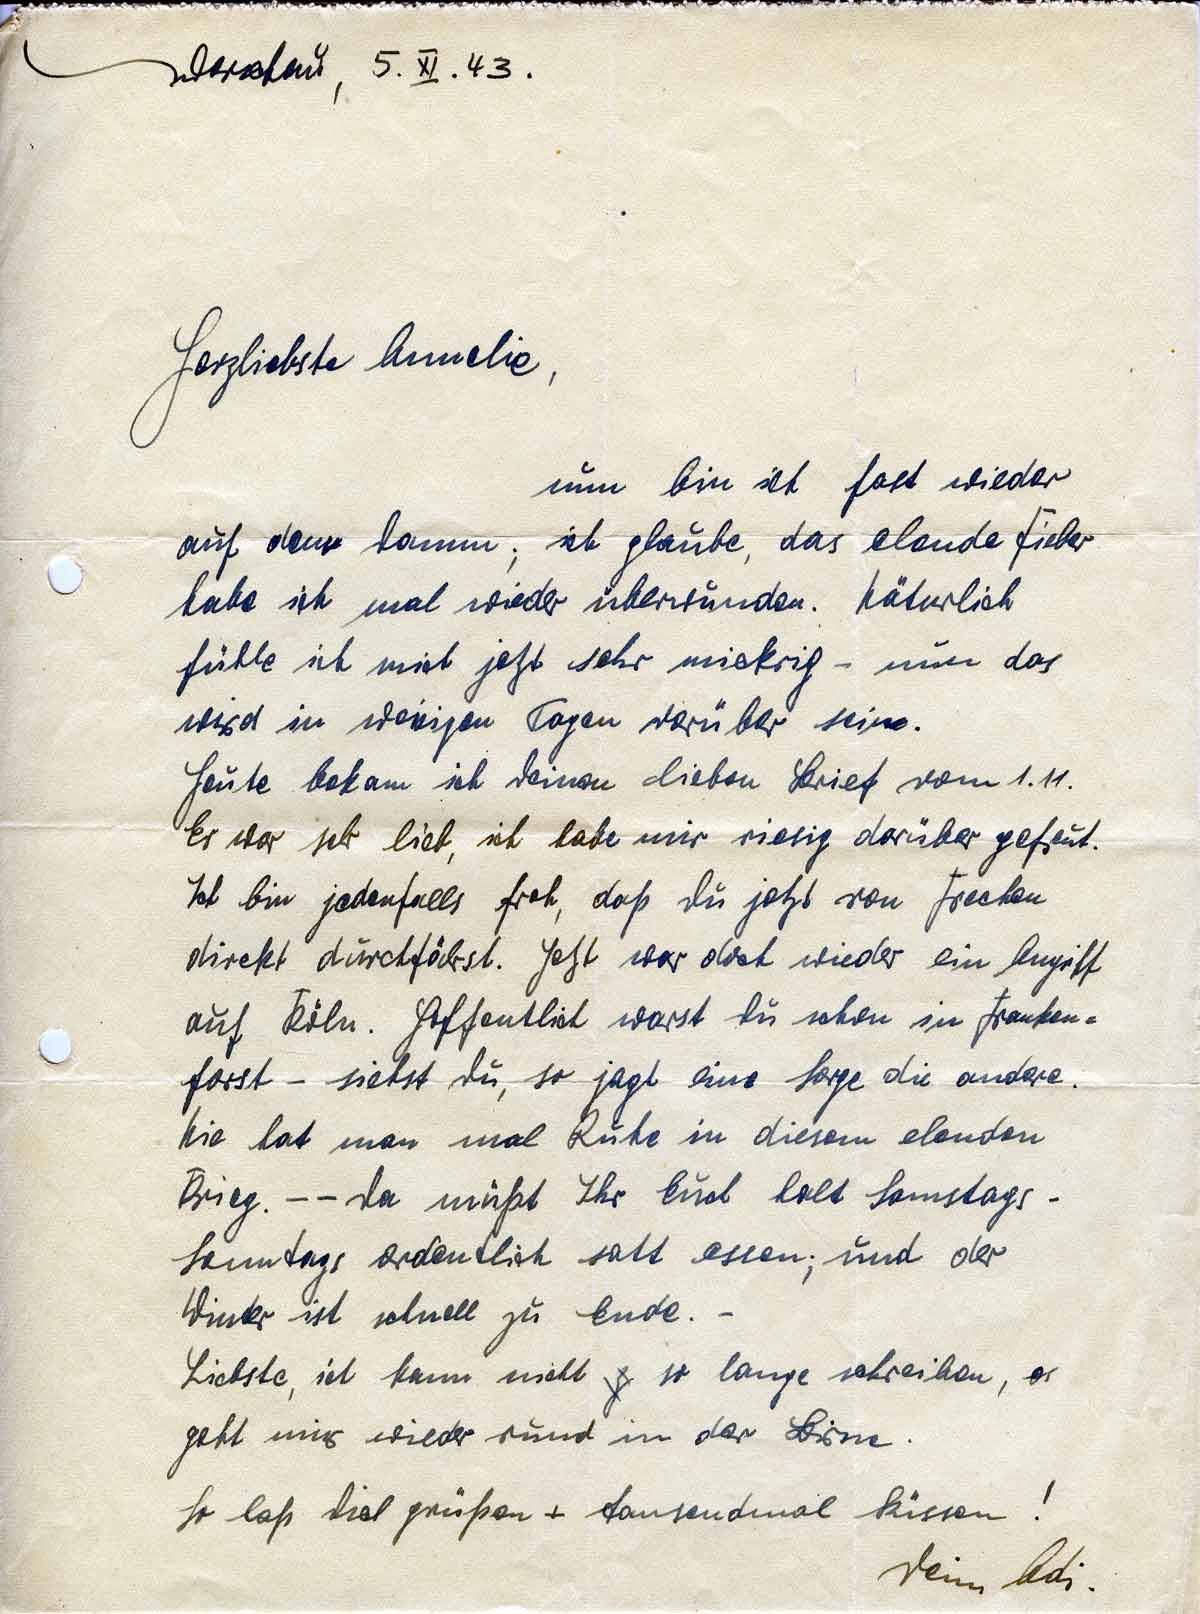 Warschau, 5. XI. 43.
Herzliebste Annelie,
nun bin ich fast wieder
auf dem Damm; ich glaube, das elende Fieber
habe ich mal wieder überwunden. Natürlich
fühle ich mich jetzt sehr mickrig – nun das
wird in wenigen Tagen vorüber sein.
Heute bekam ich Deinen lieben Brief vom 1.11.
Es war sehr lieb, ich habe mir riesig darüber gefreut.
Ich bin jedenfalls froh, daß Du jetzt von Frechen
direkt durchfährst. Jetzt war doch wieder ein Angriff
auf Köln. Hoffentlich warst Du schon in Franken=
forst – siehst Du, so jagt eine Sorge die andere.
Nie hat man mal Ruhe in diesem elenden
Krieg. –– Da müßt Ihr Euch halt Samstags-
Sonntags ordentlich satt essen; und der
Winter ist schnell zu Ende. –
Liebste, ich kann nicht so lange schreiben, es
geht mir wieder rund in der Birne.
So laß Dich grüßen + tausendmal küssen!
Dein Adi.